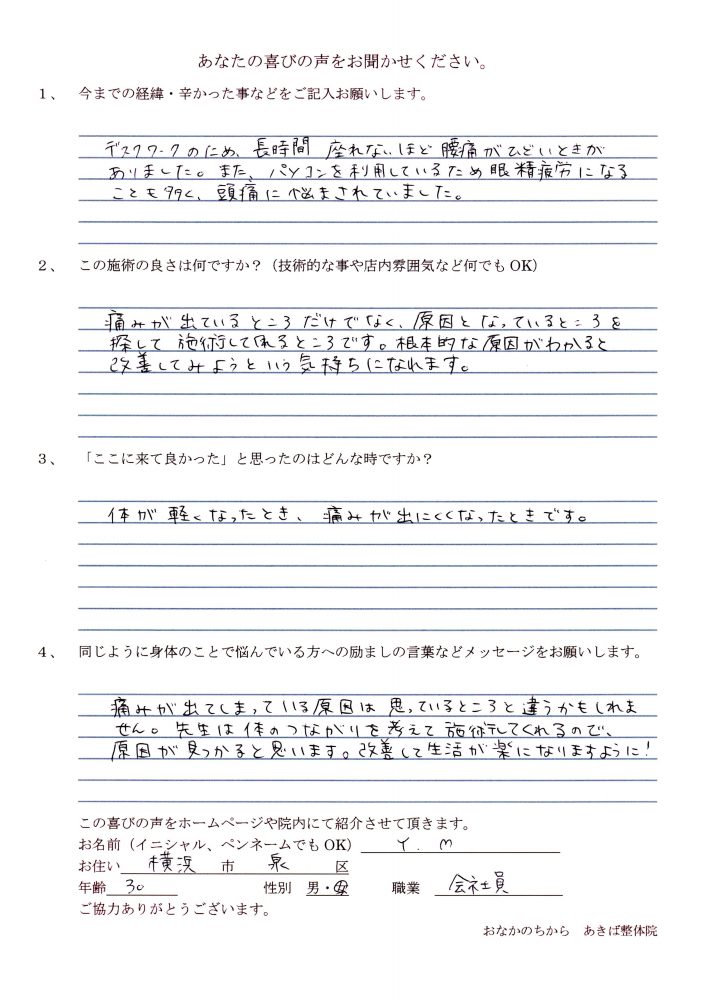 あなたの喜びの声をお聞かせください。
１、 今までの経緯・辛かった事などをご記入お願いします。
デスクワークのため、長時間 座れないほど腰痛がひどいときが
ありました。また、パソコンを利用しているため眼精疲労になる
ことも多く、頭痛に悩まされていました。
２、 この施術の良さは何ですか？（技術的な事や店内雰囲気など何でも OK）
痛みが出ているところだけでなく、原因となっているところを
探して施術してくれるところです。根本的な原因がわかると
改善してみようという気持ちになれます。
３、 「ここに来て良かった」と思ったのはどんな時ですか？
体が軽くなったとき、痛みが出にくくなったときです。
４、 同じように身体のことで悩んでいる方への励ましの言葉などメッセージをお願いします。
痛みが出てしまっている原因は思っているところと違うかもしれま
せん。先生は体のつながりを考えて施術してくれるので、
原因が見つかると思います。改善して生活が楽になりますように！
この喜びの声をホームページや院内にて紹介させて頂きます。
お名前（イニシャル、ペンネームでも OK） Y．M
お住い 横浜 市 泉 区
年齢 30 性別 男・女 職業 会社員
ご協力ありがとうございます。
おなかのちから あきば整体院